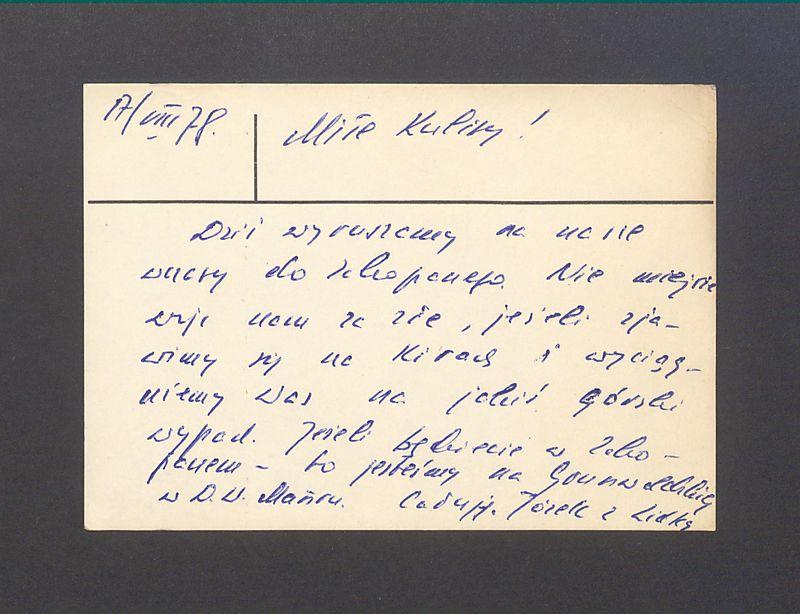 17/VIII 78.
Miłe Kulisy!
Dziś wyruszamy na nasze
wczasy do Zakopanego. Nie miejcie
więc nam za złe, jeżeli zja-
wimy się na Kirach i wyciąg-
niemy Was na jakiś górski
wypad. Jeżeli będziecie w Zako-
panem - to jesteśmy na Grunwaldzkiej
w D.W. Całuję. Józek z Lidką